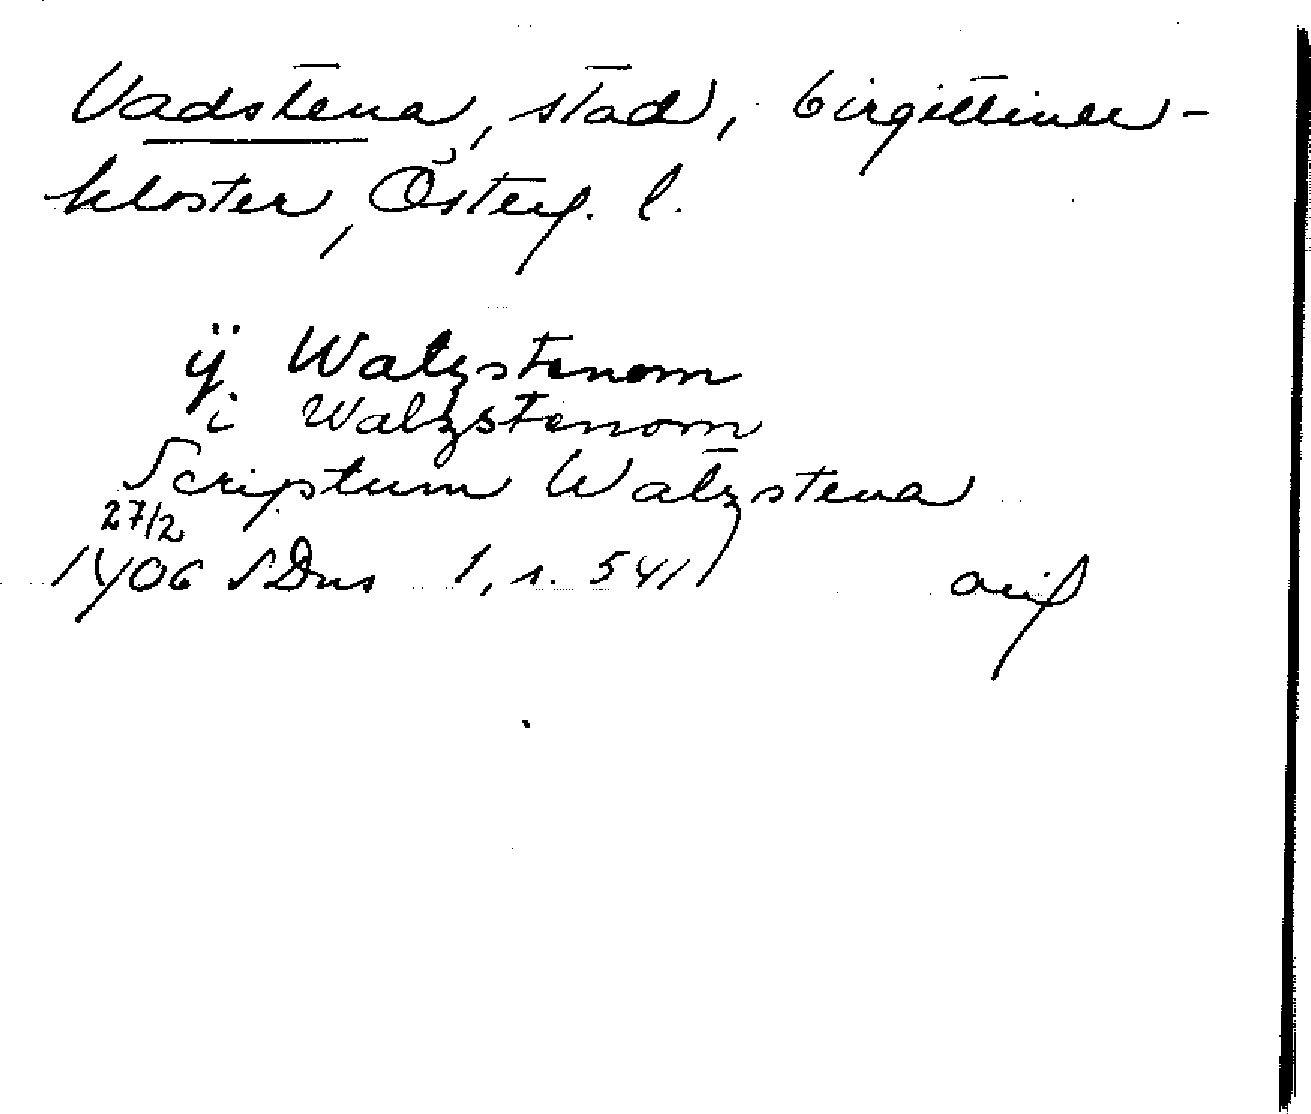 Vadstena, stad, birgittiner-
kloster, Österg. l.
ÿ Watzstenom
i Watzstenom
Scriptum Watzstena
27/2
1406 SDns 1, s. 541
orig